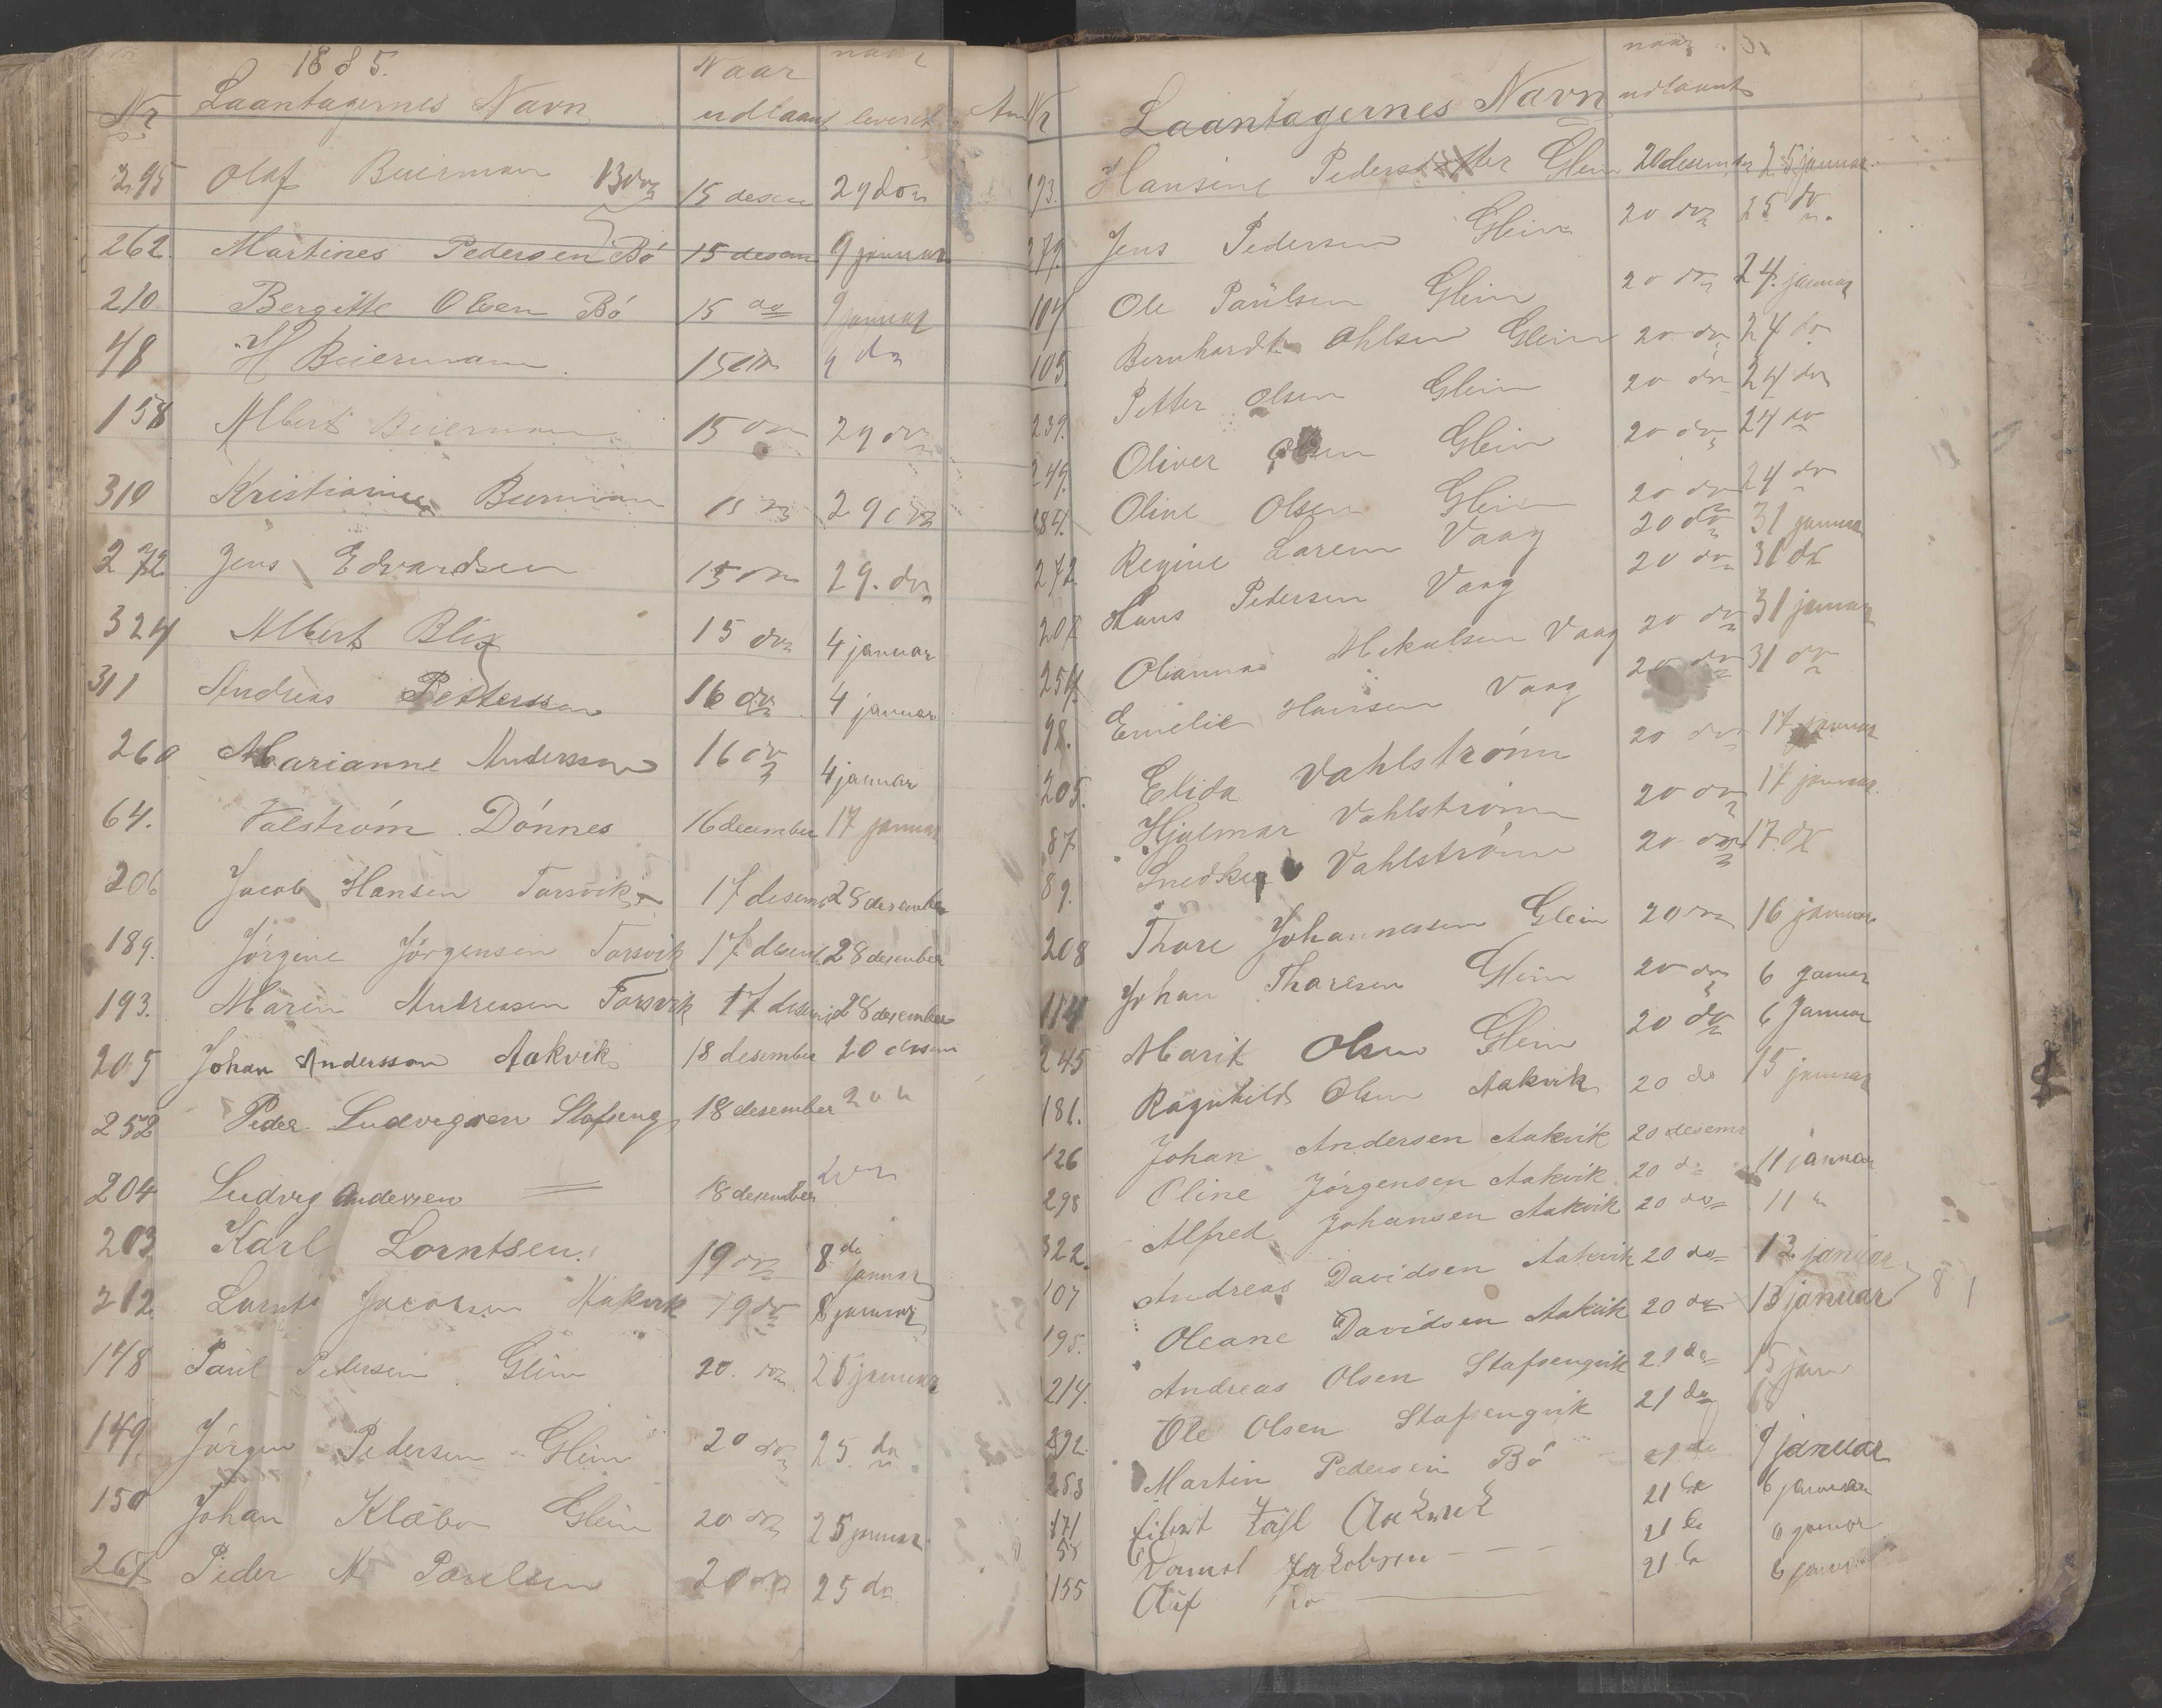 1885.
Nr Laantagernes Navn Naar udlaant naar leveret An
295 Olaf Beierman Bdo 15 desem 29 do
262. Martines Pedersen Bó 15 desem 9 januar
210 Bergitte Olsen Bó 15 do 9 januar
48 H Beiermann 15 do 9 do
158 Albert Beierman 15 do 29 do
310 Kristianne Beierman 15 do 29 do
272 Jens Edvardsen 15 do 29. do
324 Albert Blix 15 do 4 januar
311 Andreas Pettersen 16 do 4 januar
260 Marianne Anderssen 16 do 4 januar
64. Valstróm Dónnes 16 december 17 januar
206 Jacob Hansen Torsvik 17 desem 28 desember
189. Jórgine Jórgensen Torsvik 17 desem 28 desember
193. Maren Andreasen Torsvik 17 desem 28 desember
205 Johan Anderssen Aakvik 18 desember 20 desem
252 Peder Ludvigsen Stafseng 18 desember
204 Ludvig Andersen 18 desember
203 Karl Lorntsen. 19 do 8 do januar
212 Lornts Jacobsen Aakvik 19 do 8 januar
148 Paul Pedersen Glein 20. do 25 januar
149. Jórgen Pedersen Glein 20 do 25 do
150 Johan Klæbo Glein 20 do 25 januar
267 Peder M Paulsen 20 do 25 do
Nr Laantagernes Navn naar udlaant
193. Hansine Pedersdatter Glein 20 desember 25 januar
279. Jens Pedersen Glein 20 do 25 do
104 Ole Paülsen Glein 20 do 24. januar
105. Bernhardt Ohlsen Glein 20 do 24 do
239. Petter Olsen Glein 20 do 24 do
249. Oliver Olsen Glein 20 do 24 do
184. Oline Olsen Glein 20 do 24 do
272. Regine Larsen Vaag 20 do 31 januar
207 Hans Pedersen Vaag 20 do 31 do
254. Olianna Mekalsen Vaag 20 do 31 januar
98. Emelie Hansen Vaag 20 do 31 do
205. Elida Vahlstróm 20 do 17 januar
87. Hjalmar Vahlstróm 20 do 17 januar.
89. Snedker Vahlstróm 20 do 17. do
208 Thore Johannessen Glein 20 do 16 januar
114 Johan Tharesen Glein 20 do 6 januar
245 Marit Olsen Glein 20 do 6 Januar
181. Ragnhild Olsen Aakvik 20 do 15 januar
126 Johan Andersen Aakvik 20 desemr
298 Oline Jórgensen Aakvik 20 do 11 januar
322. Alfred Johansen Aakvik 20 do 11 "
107 Andreas Davidsen Aakvik 20 do 13 januar
195. Oleane Davidsen Aakvik 20 do 13 januar 8
214. Andreas Olsen Stafsengvik 21 do 15 janu
292. Ole Olsen Stafsengvik 21 do
283 Martin Pedersen Bó 21 do 9 januar
171 Eilert Aakvik 21 do 6 januar
55 Jakobsen 21 do 6 januar
155 Olüf Do 21 do 6 januar